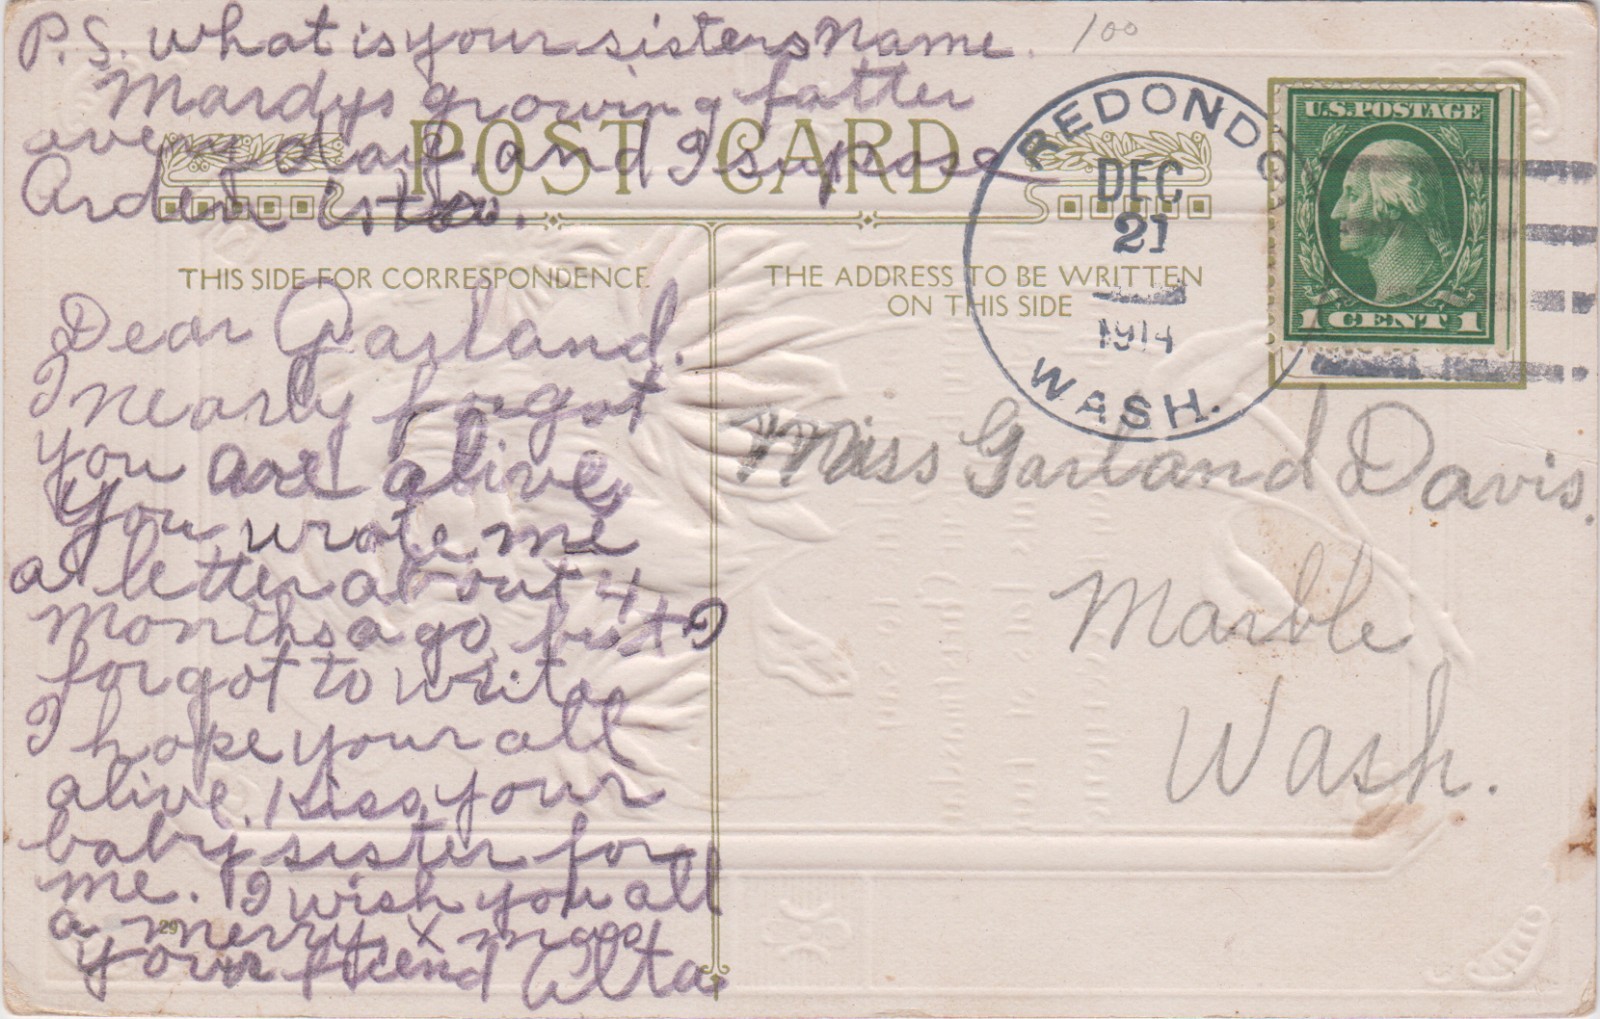 P.S. what is your sisters name. 100
Mardys growing fatter
every day, and I supose
Arden is to.
POST CARD
THIS SIDE FOR CORRESPONDENCE
THE ADDRESS TO BE WRITTEN
ON THIS SIDE
REDONDO
DEC
21
1914
WASH.
U.S. POSTAGE
1 CENT 1
Dear Garland.
I nearly forgot
you are alive,
You wrote me
a letter about 4
months ago, but I
forgot to write
I hope your all
alive, Kiss your
baby sister for
me. I wish you all
a merry x mas
your friend Alta.
29
Miss Garland Davis.
Marble
Wash.